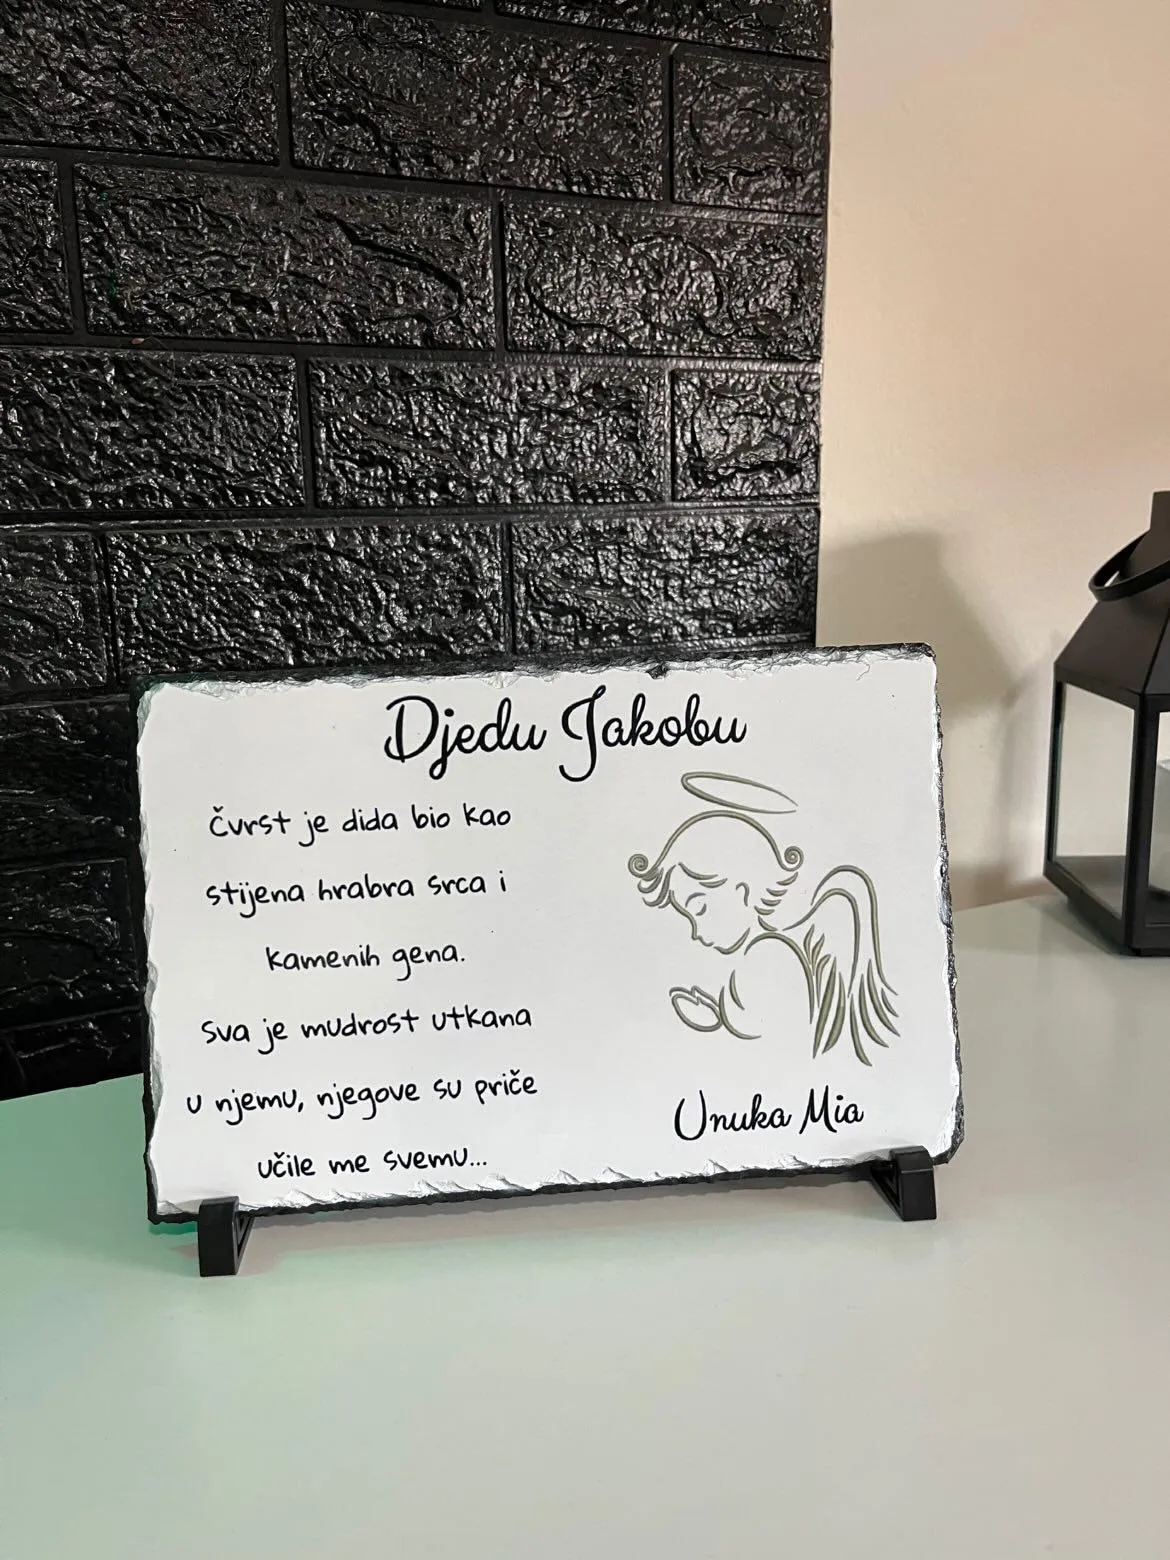 Djedu Jakobu
čvrst je dida bio kao
stijena hrabra srca i
kamenih gena.
sva je mudrost utkana
u njemu, njegove su priče
učile me svemu...
Unuka Mia